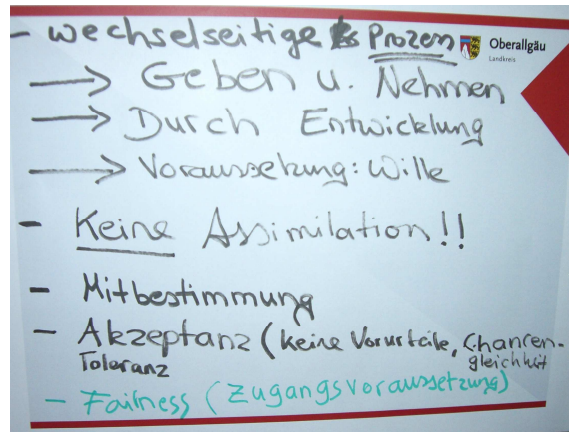 - wechselseitige Prozess
Oberallgäu
Landkreis
→ Geben u. Nehmen
→ Durch Entwicklung
→ Voraussetzung: Wille
- Keine Assimilation!!
- Mitbestimmung
- Akzeptanz (keine Vorurteile, Chancen-
gleichheit
Toleranz
- Fairness (Zugangsvoraussetzung)